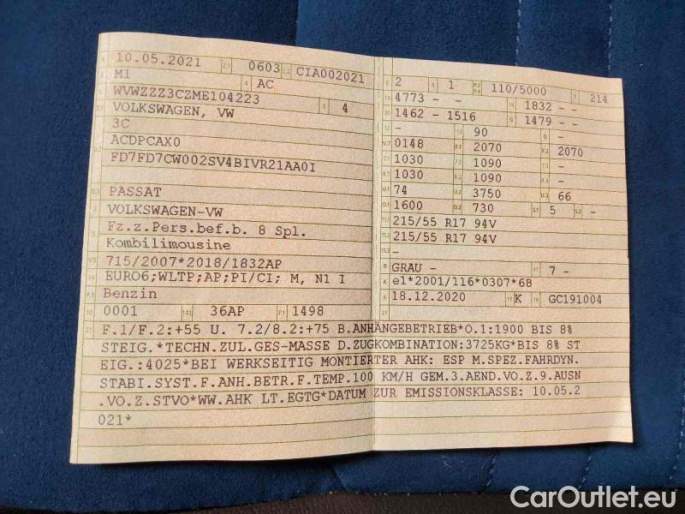 10.05.2021 0603 CIA002021
M1 AC
WVWZZZ3CZME104223 4
VOLKSWAGEN, VW
3C
ACDPCAX0
FD7FD7CW002SV4BIVR21AA0I
PASSAT
VOLKSWAGEN-VW
Fz.z.Pers.bef.b. 8 Spl.
Kombilimousine
715/2007*2018/1832AP
EURO6;WLTP;AP;PI/CI; M, N1 I
Benzin
0001 36AP 1498
2 1 110/5000 214
4773 - - 1832 - -
1462 - 1516 1479 - -
- 90 -
0148 2070 2070
1030 1090 -
1030 1090 -
74 3750 66
1600 730 5 -
215/55 R17 94V
215/55 R17 94V
-
GRAU - 7 -
e1*2001/116*0307*68
18.12.2020 K GC191004
F.1/F.2:+55 U. 7.2/8.2:+75 B.ANHÄNGEBETRIEB*O.1:1900 BIS 8%
STEIG.*TECHN.ZUL.GES-MASSE D.ZUGKOMBINATION:3725KG*BIS 8% ST
EIG.:4025*BEI WERKSEITIG MONTIERTER AHK: ESP M.SPEZ.FAHRDYN.
STABI.SYST.F.ANH.BETR.F.TEMP.100 KM/H GEM.3.AEND.VO.Z.9.AUSN
.VO.Z.STVO*WW.AHK LT.EGTG*DATUM ZUR EMISSIONSKLASSE: 10.05.2
021*
CarOutlet.eu